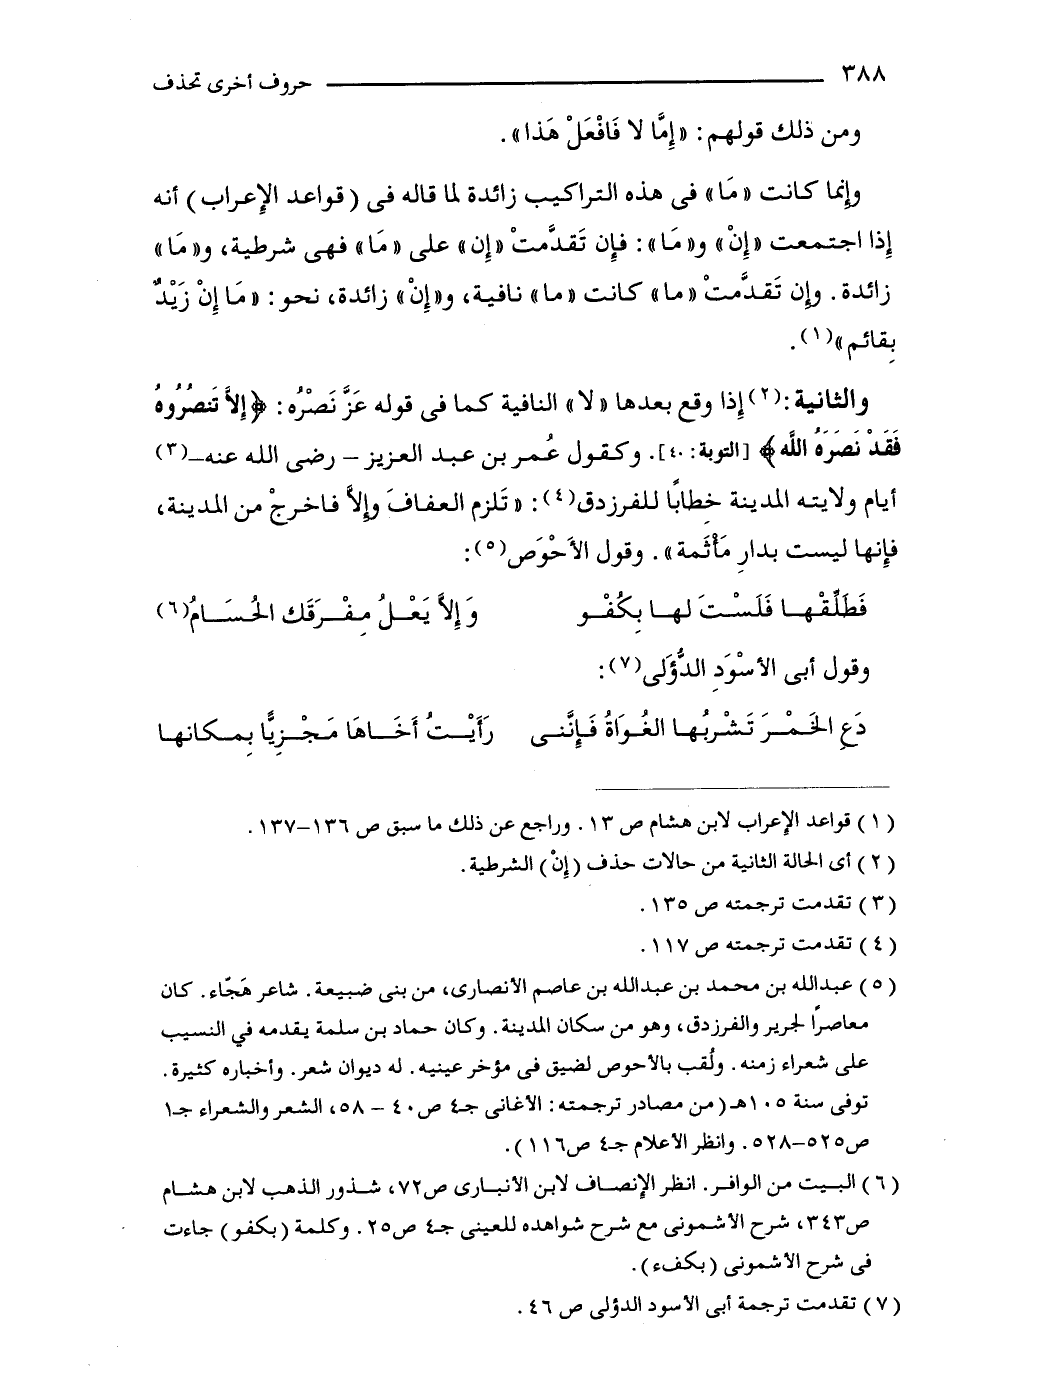 ٣٨٨ حروف أخرى تحذف
ومن ذلك قولهم: «إِمَّا لا فَافْعَلْ هَذا».
وإنما كانت «مَا» فى هذه التراكيب زائدة لما قاله فى (قواعد الإعراب) أنه
إذا اجتمعت «إِنْ» و«مَا»: فإن تَقدَّمتْ «إن» على «مَا» فهى شرطية، و«مَا»
زائدة. وإن تَقدَّمتْ «ما» كانت «ما» نافية، و«إِنْ» زائدة، نحو: «مَا إنْ زَيْدٌ
بِقائم»(١).
والثانية:(٢) إذا وقع بعدها «لا» النافية كما فى قوله عَزَّ نَصْرُه: ﴿إِلاَّ تَنصُرُوهُ
فَقَدْ نَصَرَهُ اللَّه﴾ [التوبة: ٤٠]. وكقول عُمر بن عبد العزيز – رضى الله عنه–(٣)
أيام ولايته المدينة خطابًا للفرزدق(٤): «تَلزمِ العفافَ وإلاَّ فاخرجْ من المدينة،
فإنها ليست بدارِ مَأْثَمة». وقول الأَحْوَص(٥):
فَطَلِّقْهـا فَلَسْـتَ لهـا بِكُفْـو وَإِلاَّ يَعْـلُ مـفْـرَقَك الحُسَـامُ(٦)
وقول أبى الأسْوَدِ الدُّؤَلى(٧):
دَعِ الخَمْـرَ تَشْرَبُهـا الغُـوَاةُ فَـإِنَّنـى رَأَيْـتُ أخَـاهَا مَجْـزِيًّا بِمـكانهـا
(١) قواعد الإعراب لابن هشام ص ١٣. وراجع عن ذلك ما سبق ص ١٣٦–١٣٧.
(٢) أى الحالة الثانية من حالات حذف (إِنْ) الشرطية.
(٣) تقدمت ترجمته ص ١٣٥.
(٤) تقدمت ترجمته ص ١١٧.
(٥) عبدالله بن محمد بن عبدالله بن عاصم الأنصارى، من بنى ضبيعة. شاعر هَجّاء. كان
معاصرًا لجرير والفرزدق، وهو من سكان المدينة. وكان حماد بن سلمة يقدمه في النسيب
على شعراء زمنه. ولُقب بالأحوص لضيق فى مؤخر عينيه. له ديوان شعر. وأخباره كثيرة.
توفى سنة ١٠٥هـ (من مصادر ترجمته: الأغانى جـ٤ ص٤٠ – ٥٨، الشعر والشعراء جـ١
ص٥٢٥–٥٢٨. وانظر الأعلام جـ٤ ص١١٦).
(٦) البيت من الوافر. انظر الإنصاف لابن الأنبارى ص٧٢، شذور الذهب لابن هشام
ص٣٤٣، شرح الأشمونى مع شرح شواهده للعينى جـ٤ ص٢٥. وكلمة (بكفو) جاءت
فى شرح الأشمونى (بكفء).
(٧) تقدمت ترجمة أبى الأسود الدؤلى ص ٤٦.